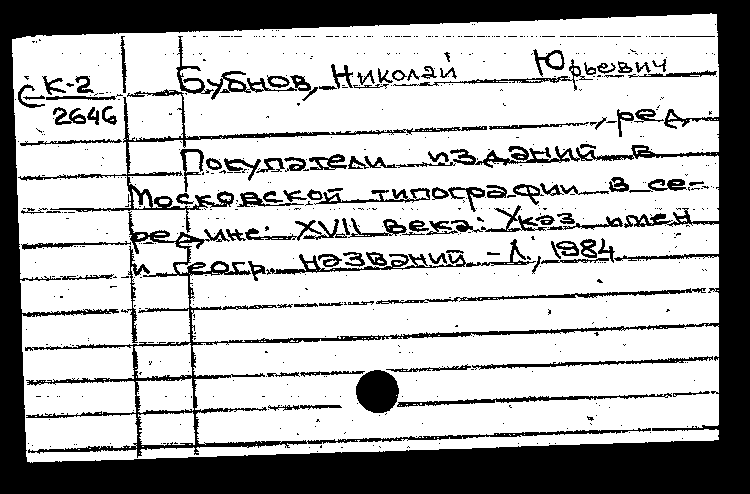 Бубнов, Николай Юрьевич
СК-2
2646
, ред.
Покупатели изданий в
Московской типографии в се-
редине XVII века: Указ. имен
и геогр. названий - Л., 1984